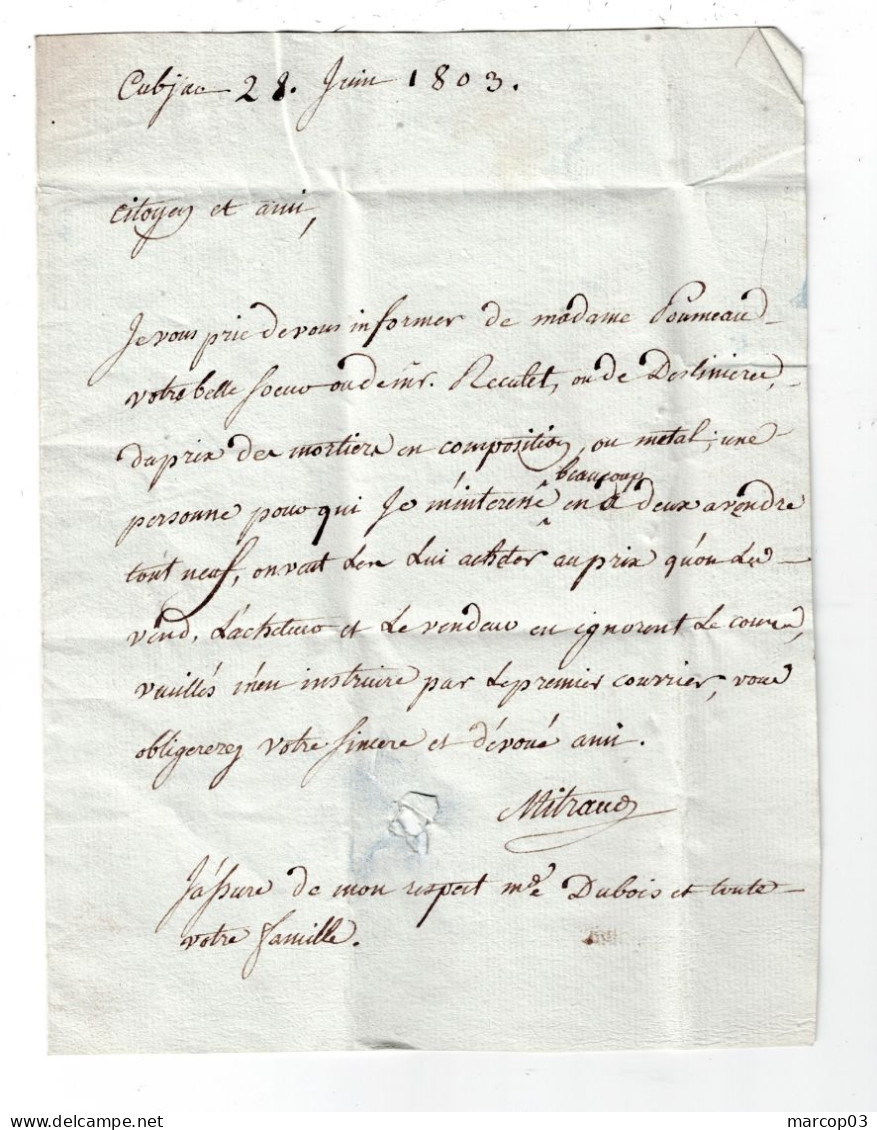 Cubjac 28. Juin 1803.
citoyen et ami,
Je vous prie de vous informer de madame Poumeaud
votre belle soeur ou de mr. Reculet, ou de Deslinieres,
du prix des mortiers en composition, ou metal; une
personne pour qui Je m'interesse beaucoup en a deux a vendre
tout neuf, on veut Les Lui acheter au prix qu'on Les
vend. L'acheteur et Le vendeur en ignorent Le cours,
vuillés m'en instruire par Le premier courrier, vous
obligerez votre sincere et dévoué ami.
Mitraud
J'assure de mon respect mde Dubois et toute
votre famille.
delcampe.net
marcop03